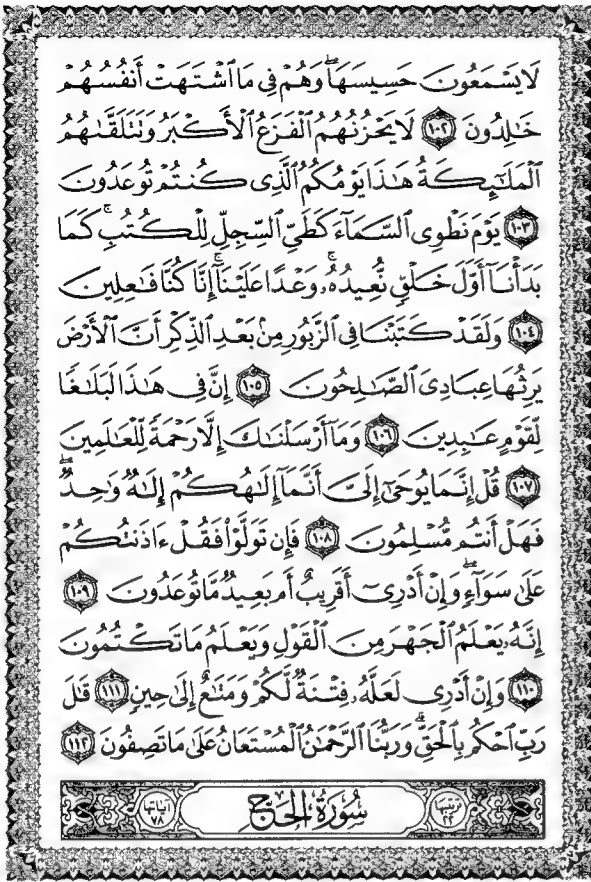 لَا يَسْمَعُونَ حَسِيسَهَا ۖ وَهُمْ فِي مَا ٱشْتَهَتْ أَنفُسُهُمْ
خَـٰلِدُونَ ١٠٢ لَا يَحْزُنُهُمُ ٱلْفَزَعُ ٱلْأَكْبَرُ وَتَتَلَقَّىٰهُمُ
ٱلْمَلَـٰٓئِكَةُ هَـٰذَا يَوْمُكُمُ ٱلَّذِى كُنتُمْ تُوعَدُونَ
١٠٣ يَوْمَ نَطْوِى ٱلسَّمَآءَ كَطَىِّ ٱلسِّجِلِّ لِلْكُتُبِ ۚ كَمَا
بَدَأْنَآ أَوَّلَ خَلْقٍ نُّعِيدُهُۥ ۚ وَعْدًا عَلَيْنَآ ۚ إِنَّا كُنَّا فَـٰعِلِينَ
١٠٤ وَلَقَدْ كَتَبْنَا فِى ٱلزَّبُورِ مِنۢ بَعْدِ ٱلذِّكْرِ أَنَّ ٱلْأَرْضَ
يَرِثُهَا عِبَادِىَ ٱلصَّـٰلِحُونَ ١٠٥ إِنَّ فِى هَـٰذَا لَبَلَـٰغًا
لِّقَوْمٍ عَـٰبِدِينَ ١٠٦ وَمَآ أَرْسَلْنَـٰكَ إِلَّا رَحْمَةً لِّلْعَـٰلَمِينَ
١٠٧ قُلْ إِنَّمَا يُوحَىٰٓ إِلَىَّ أَنَّمَآ إِلَـٰهُكُمْ إِلَـٰهٌ وَٰحِدٌ ۖ
فَهَلْ أَنتُم مُّسْلِمُونَ ١٠٨ فَإِن تَوَلَّوْا۟ فَقُلْ ءَاذَنتُكُمْ
عَلَىٰ سَوَآءٍ ۖ وَإِنْ أَدْرِىٓ أَقَرِيبٌ أَم بَعِيدٌ مَّا تُوعَدُونَ ١٠٩
إِنَّهُۥ يَعْلَمُ ٱلْجَهْرَ مِنَ ٱلْقَوْلِ وَيَعْلَمُ مَا تَكْتُمُونَ
١١٠ وَإِنْ أَدْرِى لَعَلَّهُۥ فِتْنَةٌ لَّكُمْ وَمَتَـٰعٌ إِلَىٰ حِينٍ ١١١ قَـٰلَ
رَبِّ ٱحْكُم بِٱلْحَقِّ ۗ وَرَبُّنَا ٱلرَّحْمَـٰنُ ٱلْمُسْتَعَانُ عَلَىٰ مَا تَصِفُونَ ١١٢
ترتيبها ٢٢ سُورَةُ الحَجِّ آياتها ٧٨